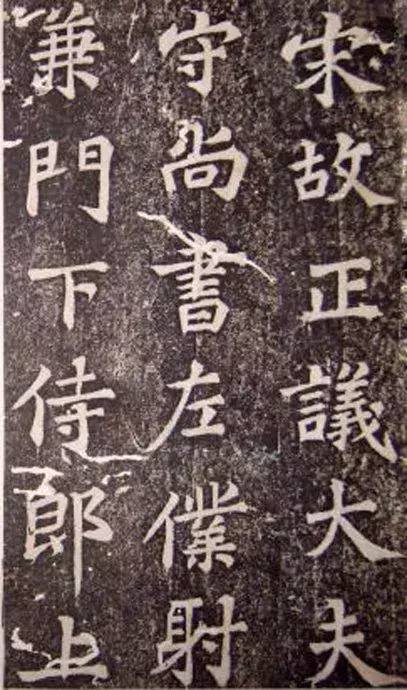 宋故正議大夫
守尚書左僕射
兼門下侍郎上